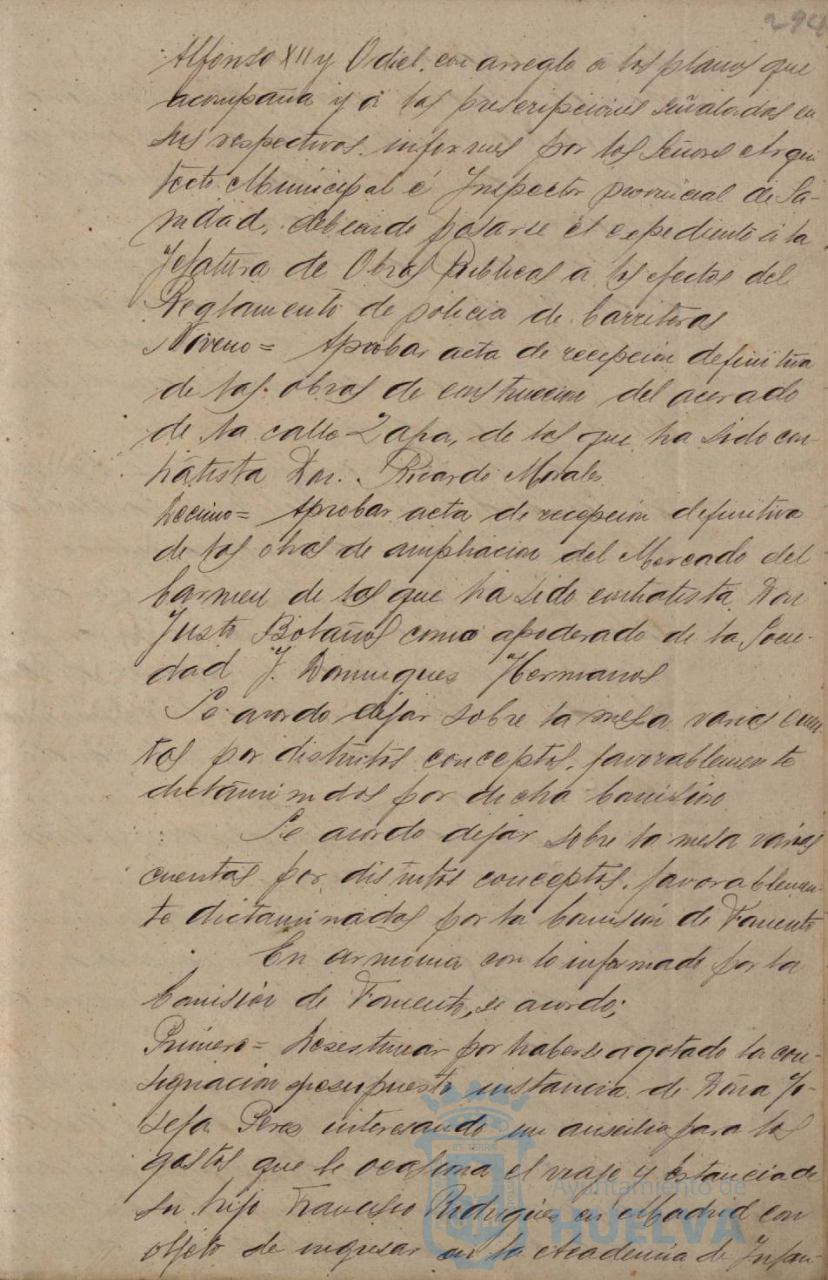 294
Alfonso XII y Odiel. con arreglo a los planos que
acompaña y a las prescripciones señaladas en
sus respectivos informes por los Señores Arqui
tecto Municipal é Inspector provincial de Sa-
nidad, debiendo pasarse el expediente a la
Jefatura de Obras Publicas a los efectos del
Reglamento de policia de Carreteras
Noveno = Aprobar acta de recepcion definitiva
de las obras de construccion del acerado
de la calle Zafra, de las que ha sido con
tratista Don. Ricardo Morales.
Decimo = Aprobar acta de recepcion definitiva
de las obras de ampliacion del Mercado del
Carmen de las que ha sido contratista Don
Justo Bolaños como apoderado de la Socie-
dad J. Domingues Hermanos
Se acordo dejar sobre la mesa varias cuen-
tas por distintos conceptos, favorablemente
dictaminadas por dicha Comision
Se acordo dejar sobre la mesa varias
cuentas por distintos conceptos, favorablemen-
te dictaminadas por la Comisión de Fomento
En armonia con lo informado por la
Comisión de Fomento, se acordo;
Primero = Desestimar por haberse agotado la con-
signacion presupuesta instancia de Doña Jo-
sefa Peres interesando un auxilio para los
gastos que le ocasiona el viaje y estancia de
su hijo Francisco Rodrigues en Madrid con
objeto de ingresar en la Academia de Infan-
Ayuntamiento de
HUELVA